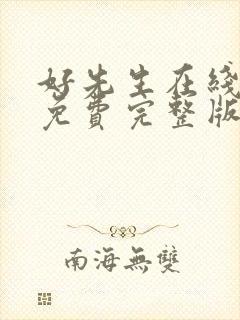 好先生在线
免費完整版
南海無雙